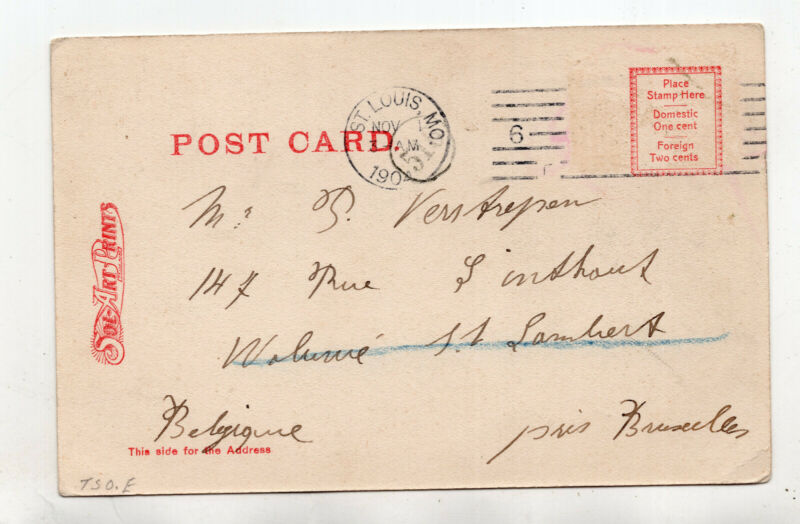 POST CARD
ST. LOUIS, MO.
NOV
3 AM
190
51
6
Place
Stamp Here
Domestic
One cent
Foreign
Two cents
SOL-ART PRINTS
Mr Verstrepen
147 Rue
Woluwé St Lambert
Belgique près Bruxelles
This side for the Address
T S O. E